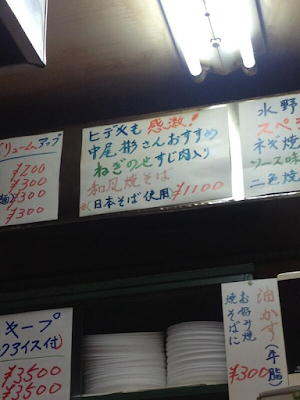 リュームアップ
¥200
¥300
¥300
¥300
ヒデキも感激!
中尾彬さんおすすめ
ねぎのせすじ肉入り
和風焼そば
日本そば使用 ¥1100
水野
スペ
ネギ焼
ソース味
二色焼
キープ
アイス付)
¥3500
¥3500
油かす(牛脂)
お好み焼
焼そばに
¥300